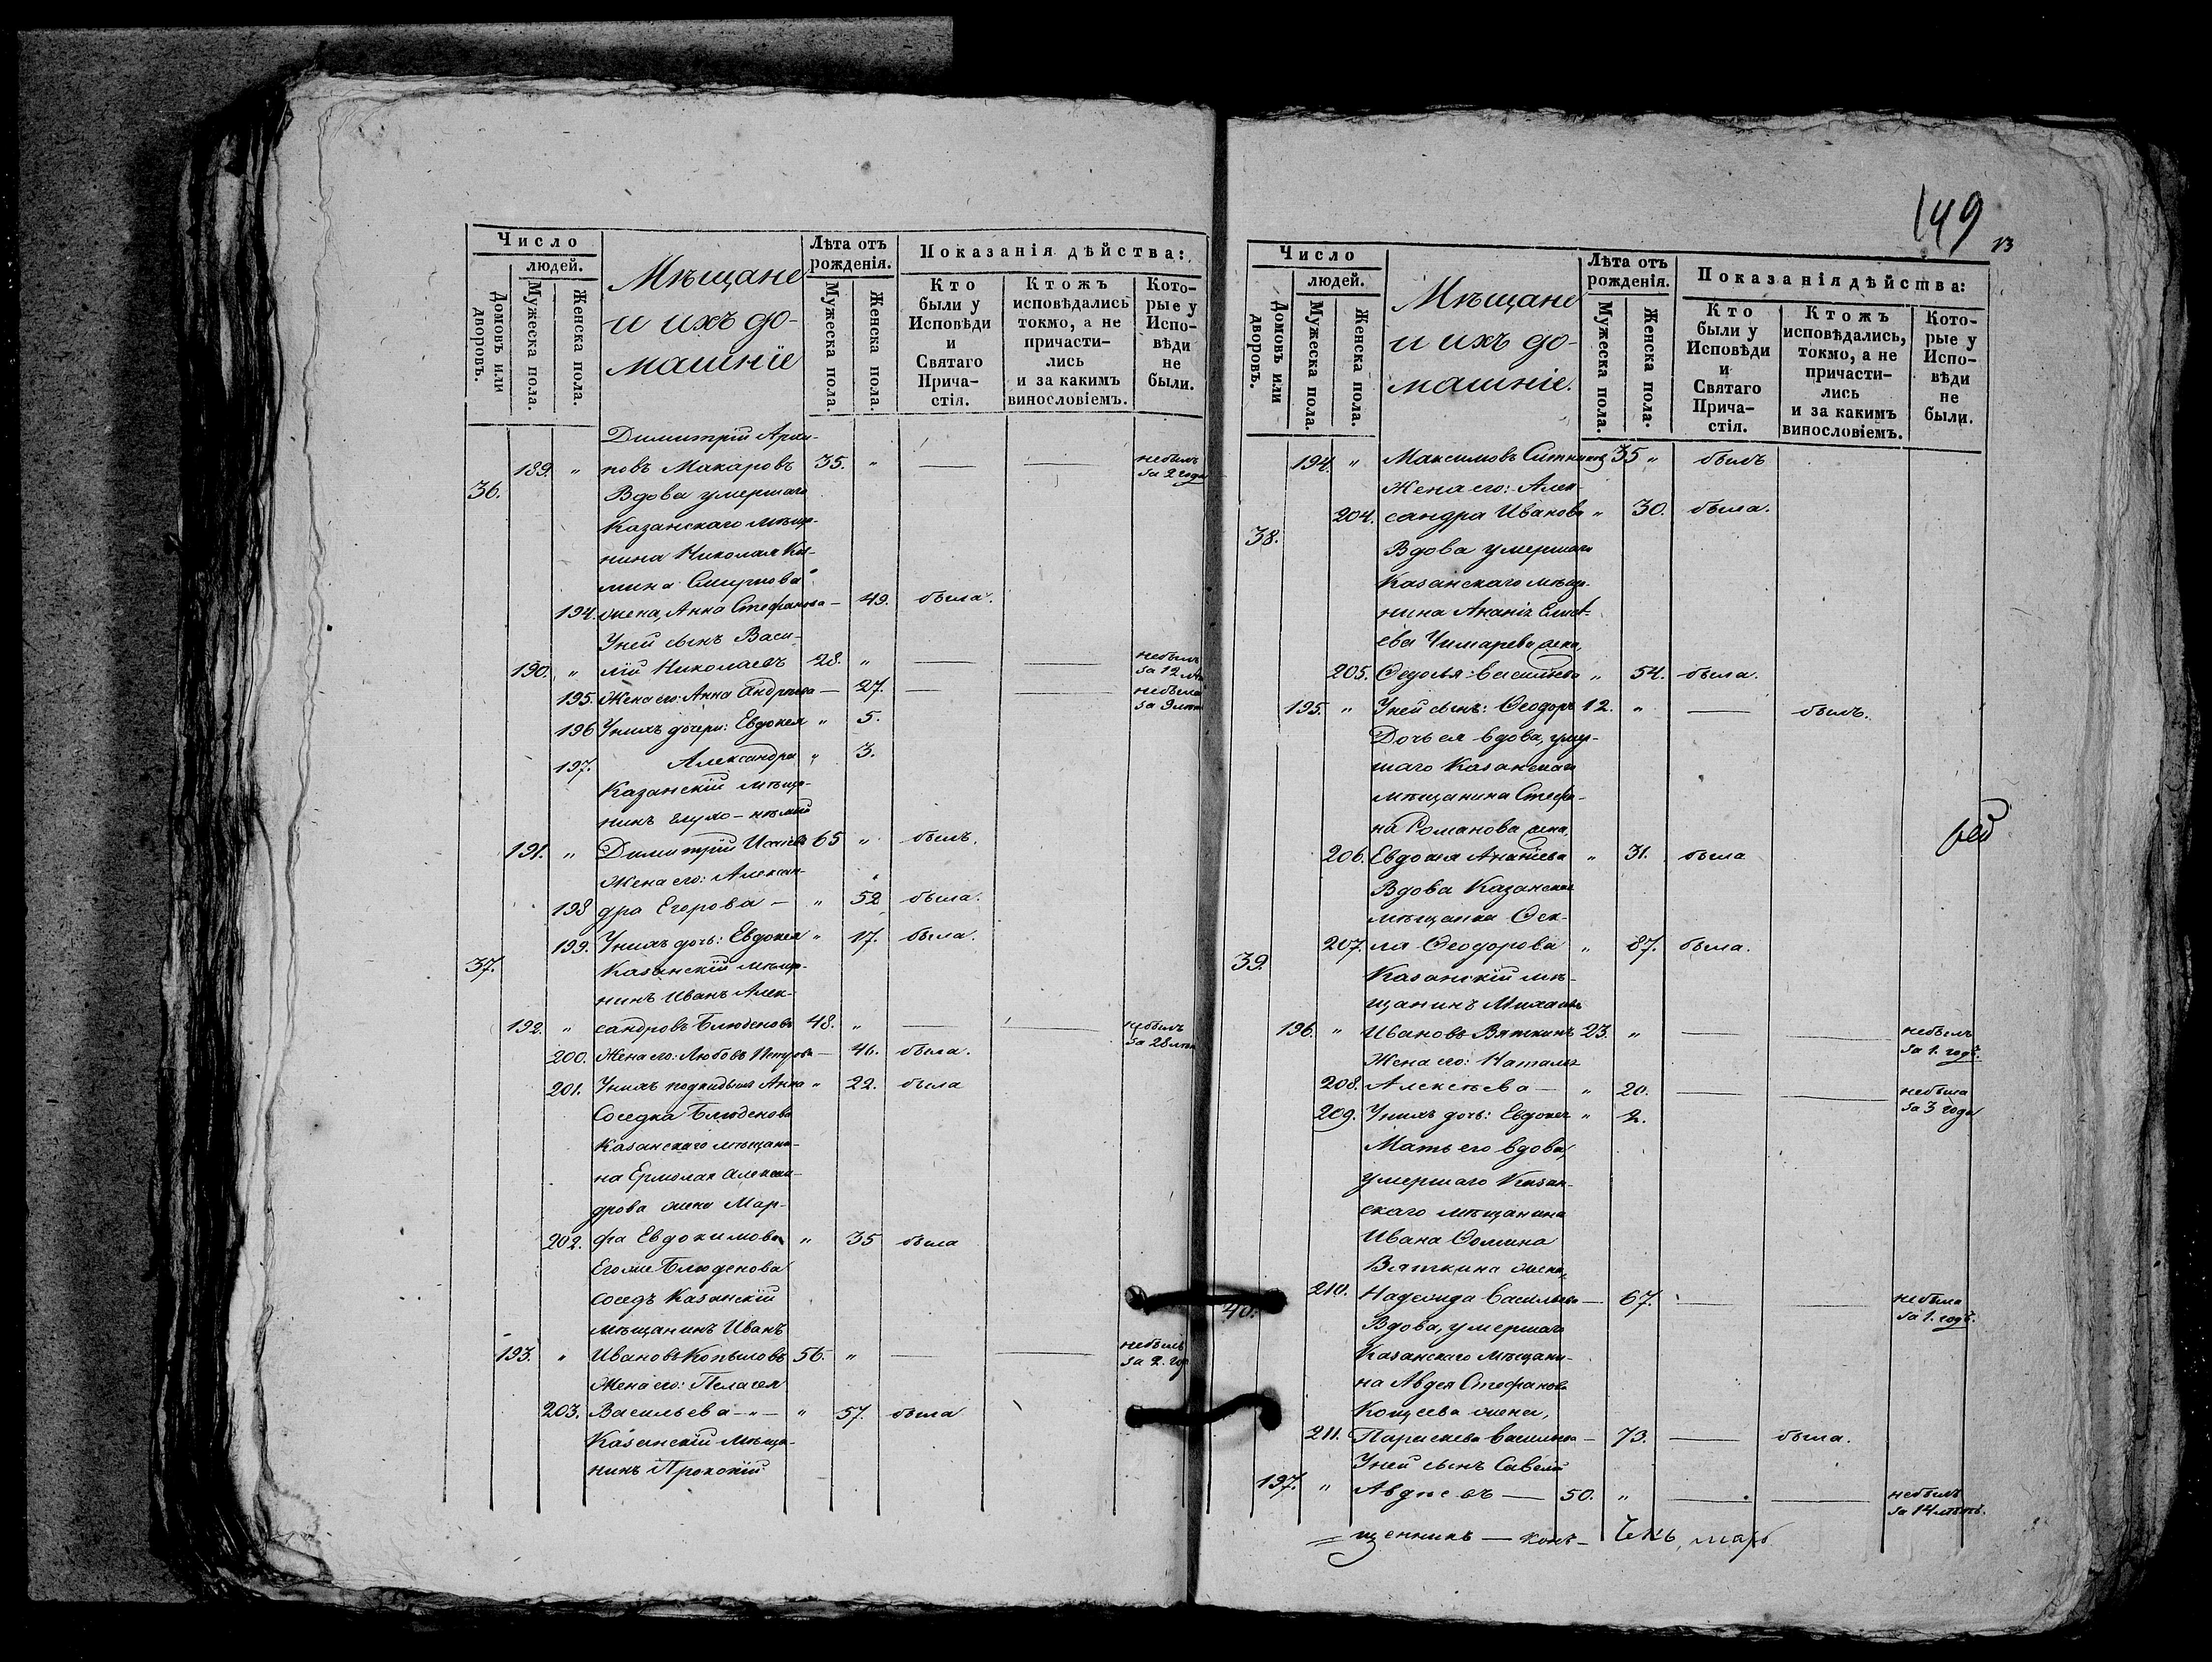 Число
людей.
Домовъ или дворовъ.
Мужеска пола.
Женска пола.
Мѣщане
и ихъ до-
машніе
Лѣта отъ
рожденія.
Мужеска пола.
Женска пола.
Показанія дѣйства:
Кто
были у
Исповѣди
и
Святаго
Прича-
стія.
Ктожъ
исповѣдались
токмо, а не
причасти-
лись
и за какимъ
винословіемъ.
Кото-
рые у
Испо-
вѣди
не
были.
Димитрій Архи-
189. " повъ Макаровъ 35. " — — небылъ за 2 года
36. Вдова умершаго
Казанскаго мѣща-
нина Николая
Смирнова
194. жена, Анна Стефанова — 49. была.
У ней сынъ Васи-
190. " лій Николаевъ 28. " — — небылъ за 12
195. Жена его: Анна Андреева — 27. — небыла за 9
196 У нихъ дочери: Евдокея " 5.
197. Александра " 3.
Казанскій мѣща-
нинъ глухо-нѣмый
191. " Димитрій 65 " былъ.
Жена его: Алексан-
198 дра Егерова — " 52 была.
199. У нихъ дочь: Евдокея " 17. была.
37. Казанскій мѣща-
нинъ Иванъ Алек-
192. " сандровъ Блюденовъ 48. " — — небылъ за 28
200. Жена его: Любовь Петрова — 46. была.
201. У нихъ подкидыш Анна " 22. была
Соседка Блюденова
Казанскаго мѣщани-
на Ермолая Алексан-
дрова жена Мар-
202. фа Евдокимова " 35 была
Егоже Блюденова
соседъ Казанскій
мѣщанинъ Иванъ
193. " Ивановъ Копыловъ 56. " — — небылъ за 2.
Жена его: Пелагея
203. Васильева —"— " 57. была
Казанскій мѣща-
нинъ Прокопій
149
13
Число
людей.
Домовъ или дворовъ.
Мужеска пола.
Женска пола.
Мѣщане
и ихъ до-
машніе.
Лѣта отъ
рожденія.
Мужеска пола.
Женска пола.
Показанія дѣйства:
Кто
были у
Исповѣди
и
Святаго
Прича-
стія.
Ктожъ
исповѣдались,
токмо, а не
причасти-
лись
и за какимъ
винословіемъ.
Кото-
рые у
Испо-
вѣди
не
были.
194. " Максимовъ Ситниковъ 35 " былъ
Жена его: Алек-
204. сандра Иванова " 30. была.
38. Вдова умершаго
Казанскаго мѣща-
нина Ананія
Чимарева жена,
205. Федосья Васильева " 54. была.
195. " У ней сынъ: Феодоръ 12. " — былъ.
Дочь ея вдова, умер-
шаго Казанскаго
мѣщанина Стефа-
на Романова жена,
206. Евдокея Ананіева " 31. была
Вдова Казанская
мѣщанка Фек-
207. ла Феодорова " 87. была.
39. Казанскій мѣ-
щанинъ Михаилъ
196. " Ивановъ Вяткинъ 23. " — — небылъ за 1. годъ.
Жена его: Наталья
208. Алексѣева — " 20. — — небыла за 3 года
209. У нихъ дочь: Евдокея " 2.
Мать его вдова,
умершаго Казан-
скаго мѣщанина
Ивана Фомина
Вяткина жена,
210. Надежда Васильева — 67. — — небыла за 1. годъ.
40. Вдова, умершаго
Казанскаго мѣщани-
на Авдея Стефанова
Кощеева жена,
211. Параскева Васильева — 73. — была.
У ней сынъ Савелій
197. " Авдѣевъ — 50. " — — небылъ за 14 лѣтъ.
щенникъ — конс-